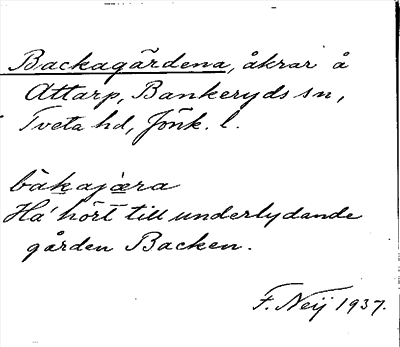 Backagärdena, åkrar å
Attarp, Bankeryds sn,
Tveta hd, Jönk. l.
bàkajæra
Ha hört till underlydande
gården Backen.
F. Neij 1937.